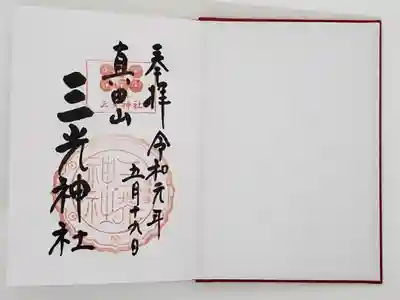 奉拝
令和元年
五月十六日
真田山
三光神社
三光神社